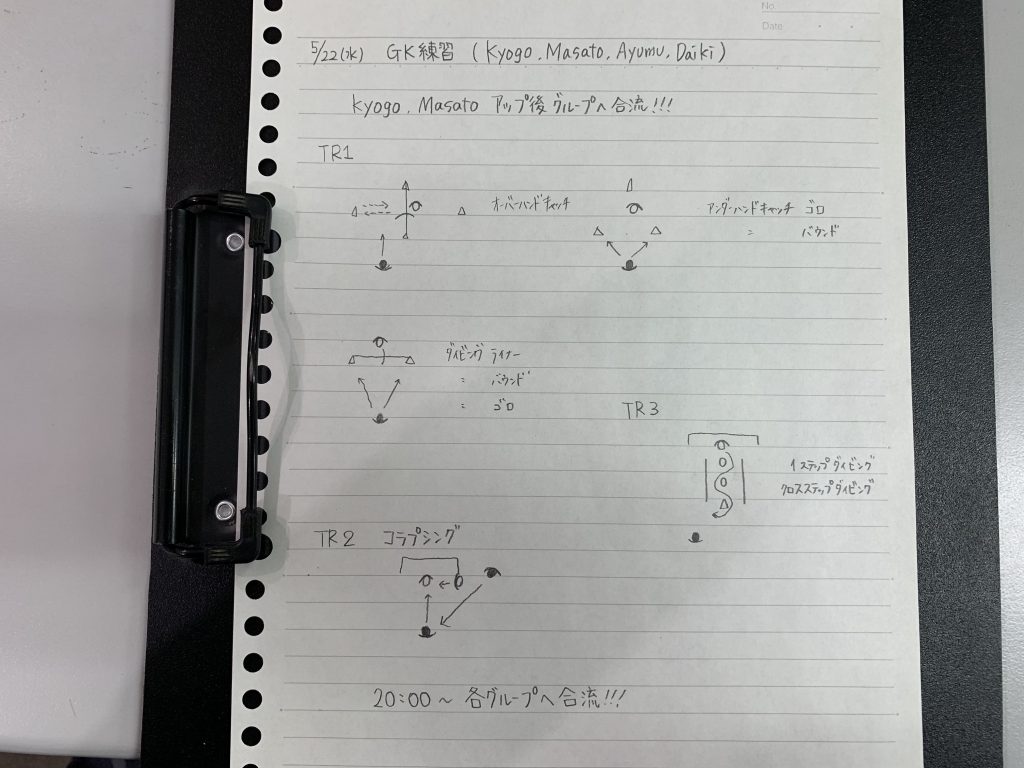 No.
Date
5/22(水) GK練習 (Kyogo, Masato, Ayumu, Daiki)
Kyogo, Masato アップ後グループへ合流!!!
TR1
オーバーハンドキャッチ
アンダーハンドキャッチ ゴロ
〃 バウンド
ダイビング ライナー
〃 バウンド
〃 ゴロ
TR3
1ステップダイビング
クロスステップダイビング
TR2 コラプシング
20:00〜 各グループへ合流!!!